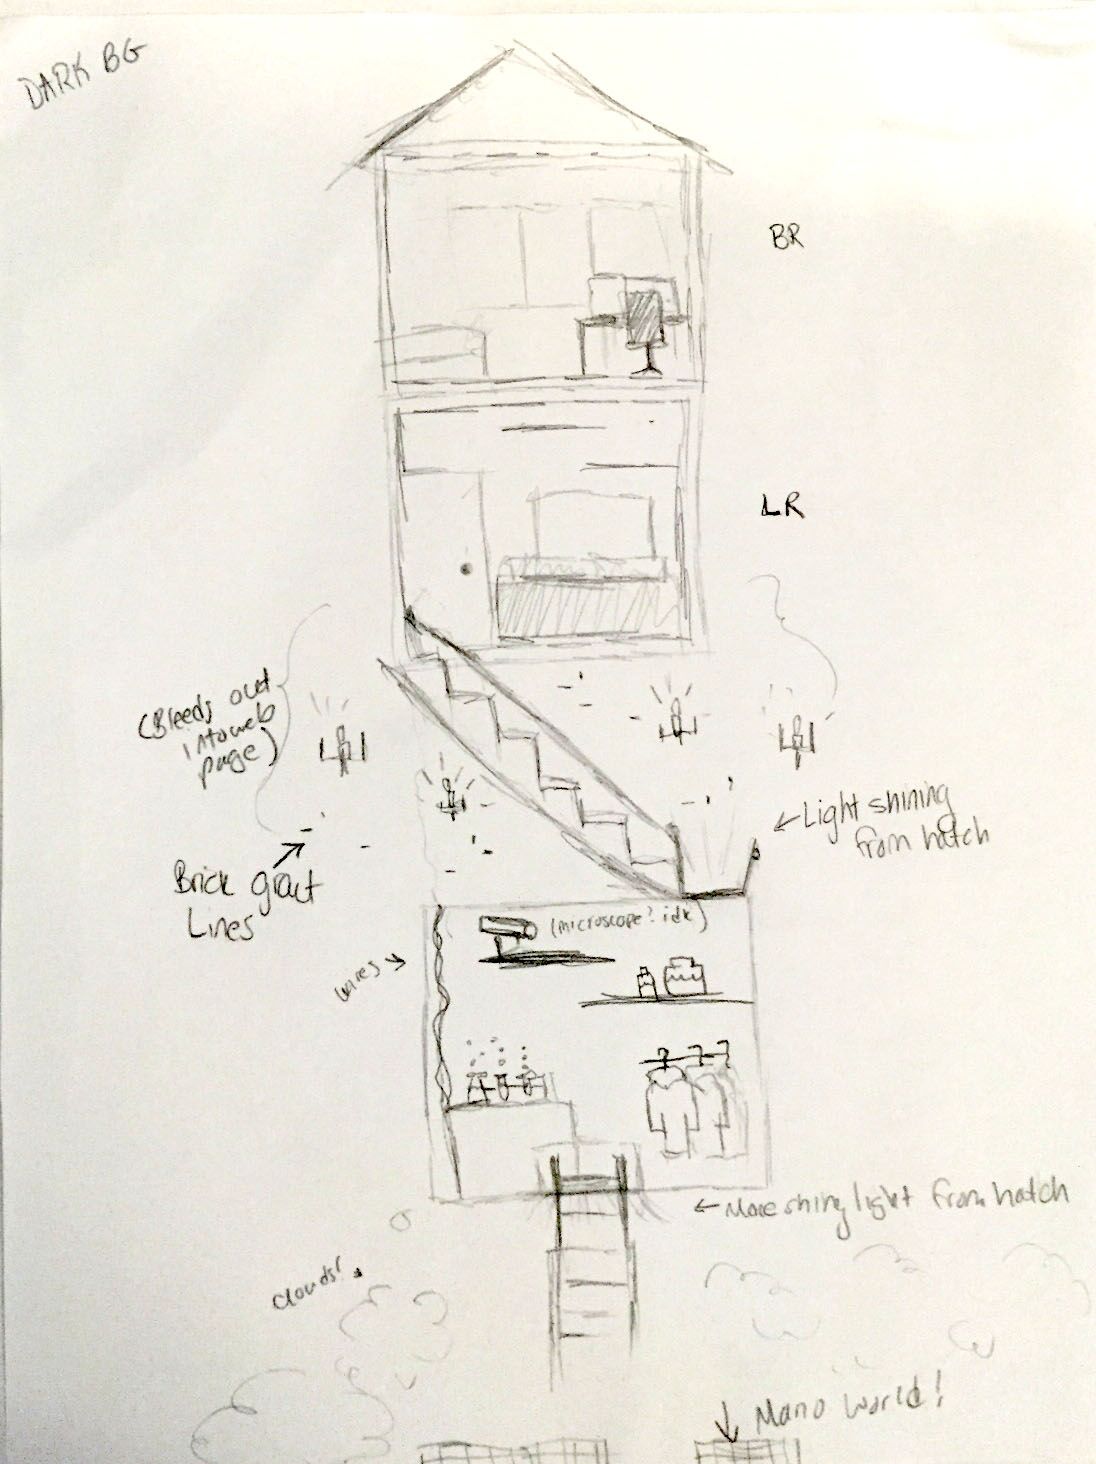 DARK BG
BR
LR
(Bleeds out
into web
page)
Light shining
from hatch
Brick grout
Lines
(microscope? idk)
wires
More shiny light from hatch
clouds!
Mano World!